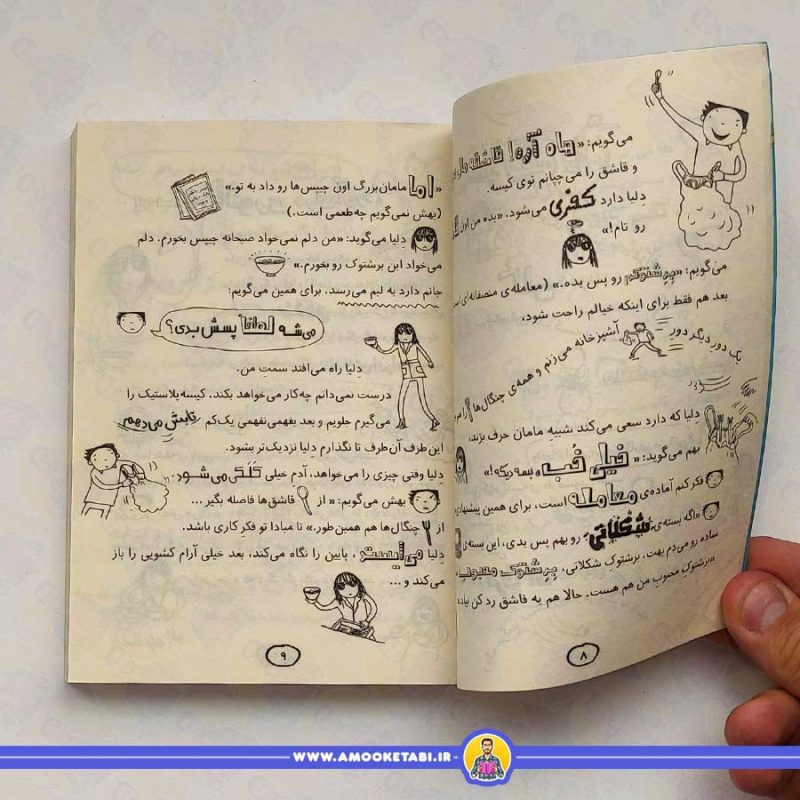 می‌گویم: «هاه آره! قاشقه مال
و قاشق را می‌چپانم توی کیسه.
دِلیا دارد کفری می‌شود. «بده من اون
رو تام!»
می‌گویم: «بِرِشتوکم رو پس بده.» (معامله‌ی منصفانه‌ای
بعد هم فقط برای اینکه خیالم راحت شود،
یک دورِ دیگر دورِ آشپزخانه می‌زنم و همه‌ی چنگال‌ها
دِلیا که دارد سعی می‌کند شبیهِ مامان حرف بزند،
بهم می‌گوید: «خیلی خُب، بسه دیگه!»
فکر کنم آماده‌ی معامله است، برای همین پیشنهاد
«اگه بسته‌ی شکلاتی رو بهم پس بدی، این بسته‌ی
ساده رو می‌دم بهت. برشتوکِ شکلاتی، بِرِشتوک محبوب
«برشتوکِ محبوبِ من هم هست. حالا هم یه قاشق رد کن بیاد
۸
«اما مامان‌بزرگ اون چیپس‌ها رو داد به تو.»
(بهش نمی‌گویم چه‌طعمی است.)
دِلیا می‌گوید: «من دلم نمی‌خواد صبحانه چیپس بخورم. دلم
می‌خواد این برشتوک رو بخورم.»
جانم دارد به لبم می‌رسد. برای همین می‌گویم:
می‌شه لطفاً پسش بدی؟
دِلیا راه می‌افتد سمت من.
درست نمی‌دانم چه‌کار می‌خواهد بکند. کیسه‌پلاستیک را
می‌گیرم جلویم و بعد بفهمی‌نفهمی یک‌کم تابش می‌دهم
این‌طرف آن‌طرف تا نگذارم دِلیا نزدیک‌تر بشود.
دِلیا وقتی چیزی را می‌خواهد، آدم خیلی کَلَکی می‌شود.
بهش می‌گویم: «از قاشق‌ها فاصله بگیر ...
از چنگال‌ها هم همین طور.» تا مبادا تو فکرِ کاری باشد.
دِلیا می‌ایستد، پایین را نگاه می‌کند، بعد خیلی آرام کشویی را باز
می‌کند و ...
۹
WWW.AMOOKETABI.IR